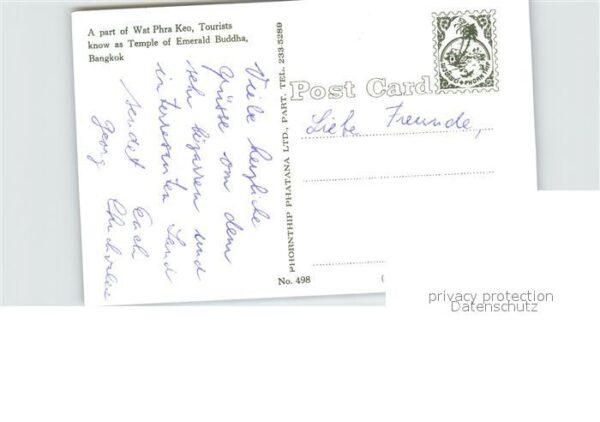 A part of Wat Phra Keo, Tourists
know as Temple of Emerald Buddha,
Bangkok
Viele herzliche
Grüsse om dem
sehr bizarren und
interresanten Land
sendet Euch
Georg
PHORNTHIP PHATANA LTD., PART. TEL. 233-5289
Post Card
Liebe Freunde,
No. 498
privacy protection
Datenschutz